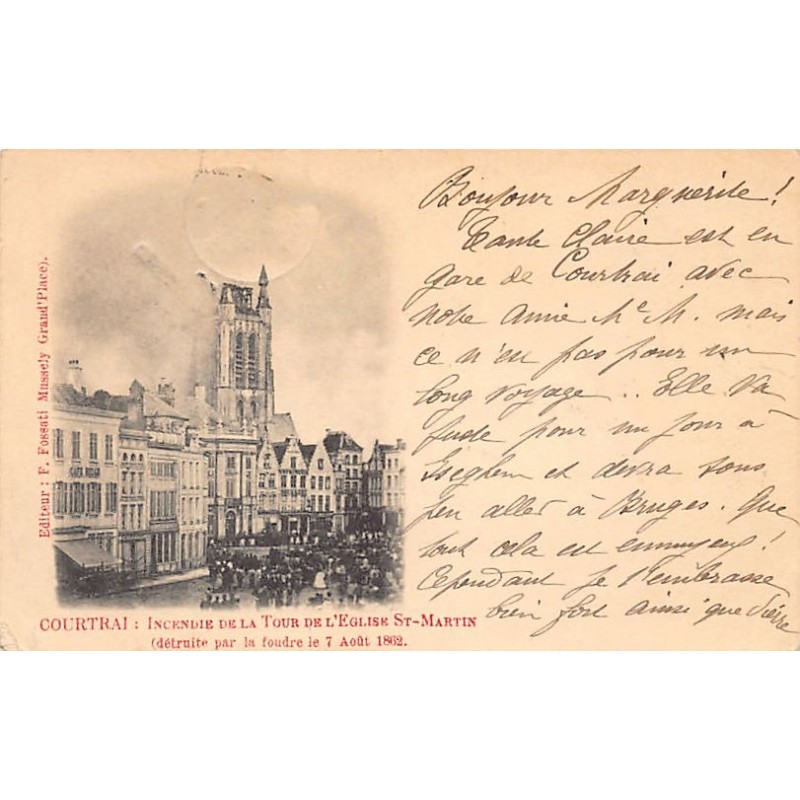 Editeur : F. Fossati Mussely Grand'Place).
COURTRAI : INCENDIE DE LA TOUR DE L'EGLISE ST-MARTIN
(détruite par la foudre le 7 Août 1862.
Bonjour Marguerite !
Tante Claire est en
gare de Courtrai avec
notre Amie Me M. mais
ce n'est pas pour un
long voyage .. Elle va
juste pour un jour à
Iseghem et devra sous
peu aller à Bruges. Que
tout cela est ennuyeux !
Cependant je t'embrasse
bien fort ainsi que Pierre